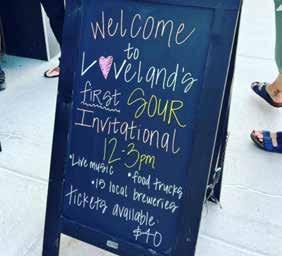 Welcome
to
L♥veland's
first SOUR
Invitational
12-3pm
•Live music •food trucks
•15 local breweries
tickets available:
$40